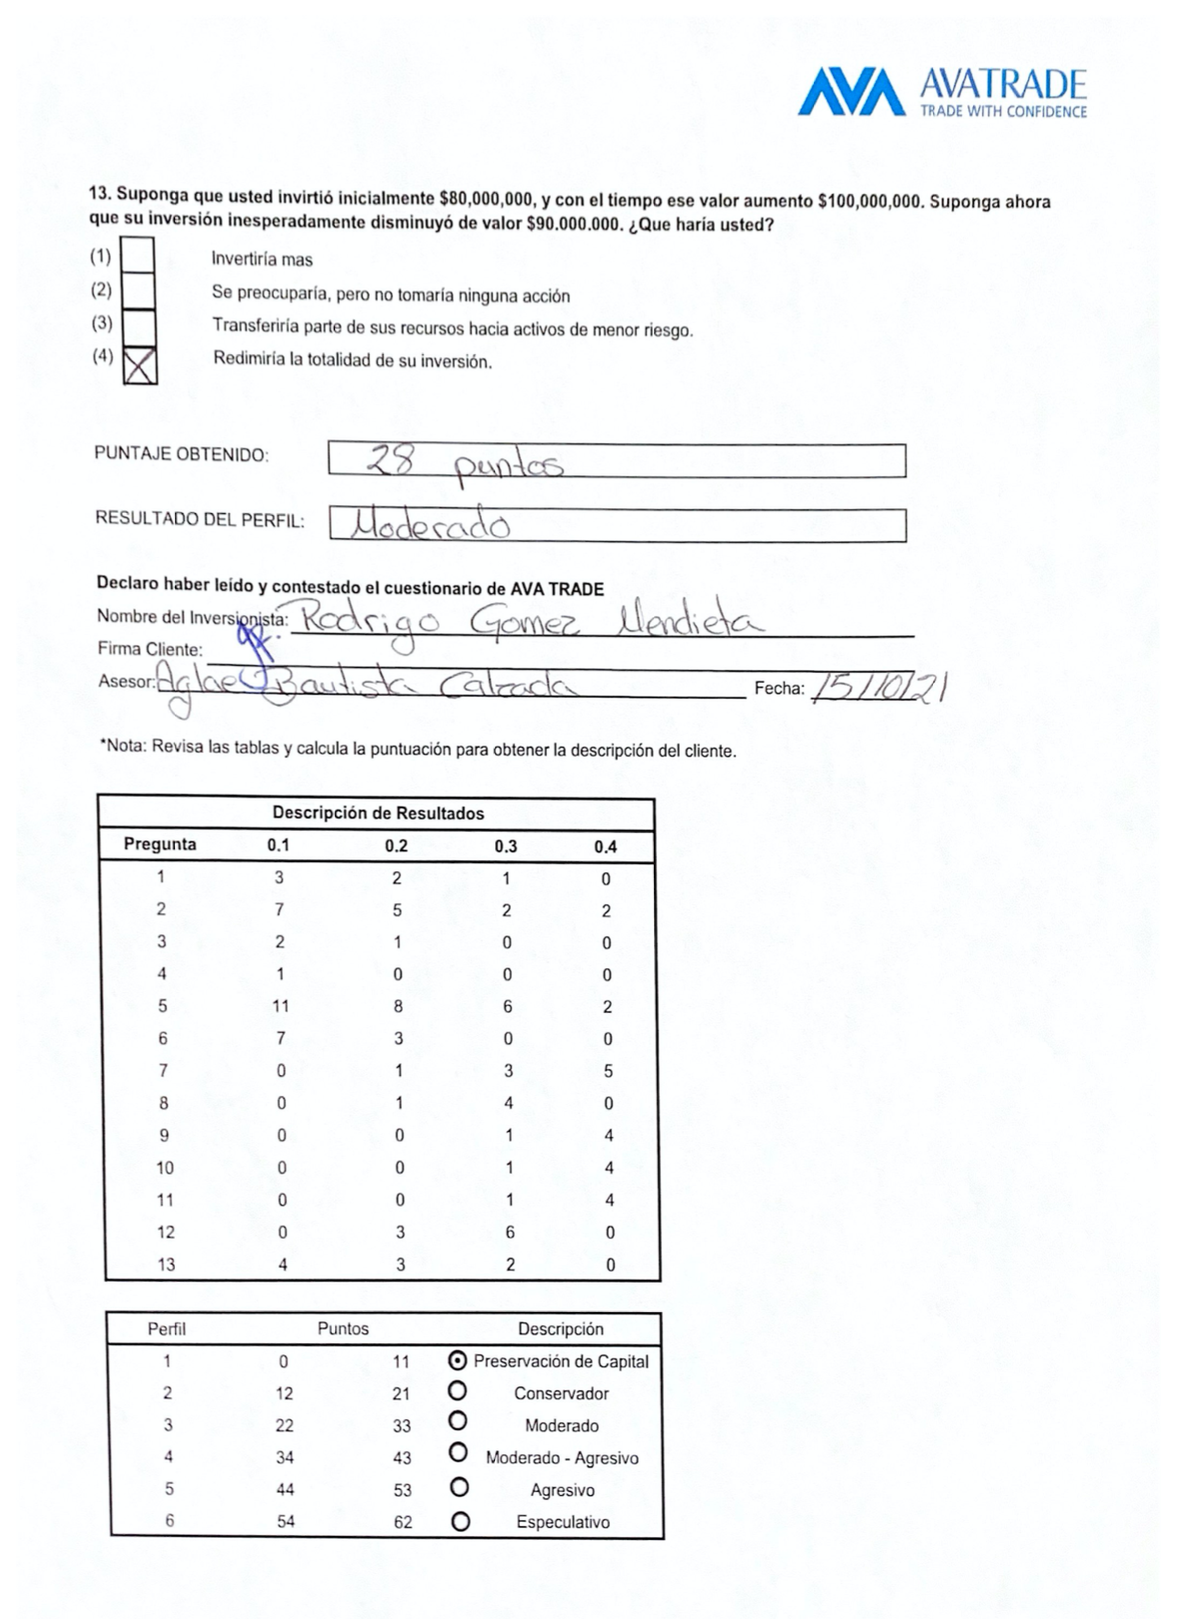 AVA AVATRADE
TRADE WITH CONFIDENCE
13. Suponga que usted invirtió inicialmente $80,000,000, y con el tiempo ese valor aumento $100,000,000. Suponga ahora
que su inversión inesperadamente disminuyó de valor $90.000.000. ¿Que haría usted?
(1) Invertiría mas
(2) Se preocuparía, pero no tomaría ninguna acción
(3) Transferiría parte de sus recursos hacia activos de menor riesgo.
(4) X Redimiría la totalidad de su inversión.
PUNTAJE OBTENIDO: 28 puntos
RESULTADO DEL PERFIL: Moderado
Declaro haber leído y contestado el cuestionario de AVA TRADE
Nombre del Inversionista: Rodrigo Gomez Mendieta
Firma Cliente:
Asesor: Aglae Bautista Calzada Fecha: 15/10/21
*Nota: Revisa las tablas y calcula la puntuación para obtener la descripción del cliente.
Descripción de Resultados
Pregunta 0.1 0.2 0.3 0.4
1 3 2 1 0
2 7 5 2 2
3 2 1 0 0
4 1 0 0 0
5 11 8 6 2
6 7 3 0 0
7 0 1 3 5
8 0 1 4 0
9 0 0 1 4
10 0 0 1 4
11 0 0 1 4
12 0 3 6 0
13 4 3 2 0
Perfil Puntos Descripción
1 0 11 Preservación de Capital
2 12 21 Conservador
3 22 33 Moderado
4 34 43 Moderado - Agresivo
5 44 53 Agresivo
6 54 62 Especulativo